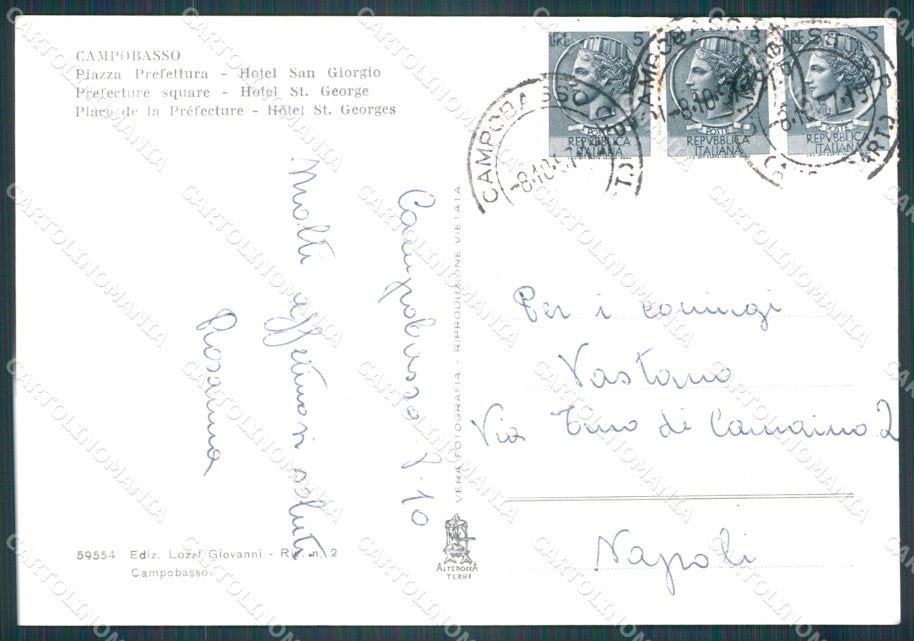 CAMPOBASSO
Piazza Prefettura - Hotel San Giorgio
Prefecture square - Hotel St. George
Place de la Préfecture - Hôtel St. Georges
LIRE 5
5
LIRE 5
POSTE
REPVBBLICA
ITALIANA
POSTE
REPVBBLICA
ITALIANA
REPVBBLICA
ITALIANA
CAMPOBASSO
-8.10.5
CAMPOBASSO
-8.10.5
Campobasso 8.10
Molti affettuosi saluti
Rosanna
VERA FOTOGRAFIA - RIPRODUZIONE VIETATA
Per i coniugi
Vastano
Via Tino di Camaino 2
Napoli
59554 Ediz. Lozzi Giovanni - Riv. n. 2
Campobasso
ALTEROCCA
TERNI
CARTOLINOMANIA